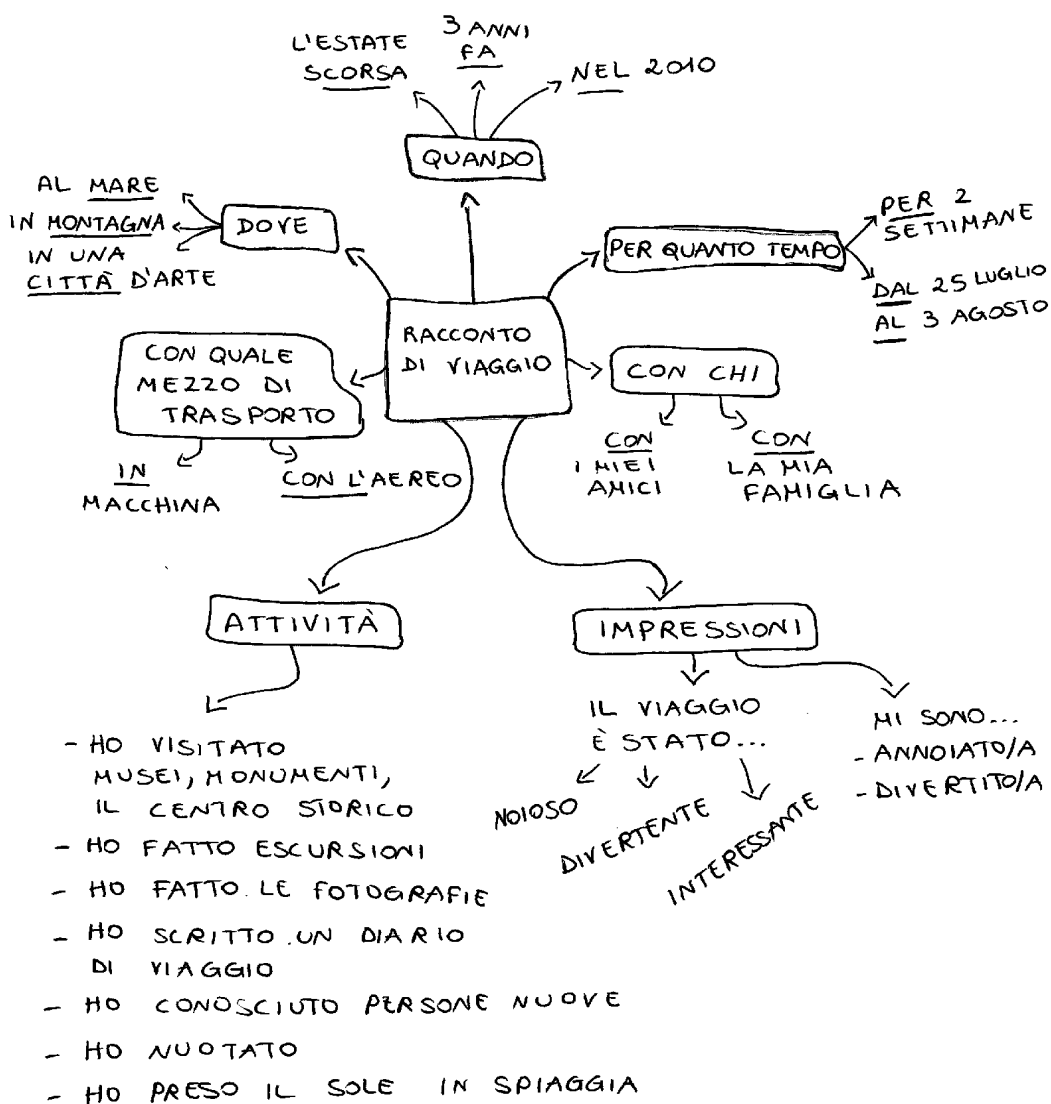 L'ESTATE
SCORSA
3 ANNI
FA
NEL 2010
QUANDO
AL MARE
IN MONTAGNA
IN UNA
CITTÀ D'ARTE
DOVE
PER QUANTO TEMPO
PER 2
SETTIMANE
DAL 25 LUGLIO
AL 3 AGOSTO
RACCONTO
DI VIAGGIO
CON QUALE
MEZZO DI
TRASPORTO
IN
MACCHINA
CON L'AEREO
CON CHI
CON
I MIEI
AMICI
CON
LA MIA
FAMIGLIA
ATTIVITÀ
- HO VISITATO
MUSEI, MONUMENTI,
IL CENTRO STORICO
- HO FATTO ESCURSIONI
- HO FATTO LE FOTOGRAFIE
- HO SCRITTO UN DIARIO
DI VIAGGIO
- HO CONOSCIUTO PERSONE NUOVE
- HO NUOTATO
- HO PRESO IL SOLE IN SPIAGGIA
IMPRESSIONI
IL VIAGGIO
È STATO...
NOIOSO
DIVERTENTE
INTERESSANTE
MI SONO...
- ANNOIATO/A
- DIVERTITO/A